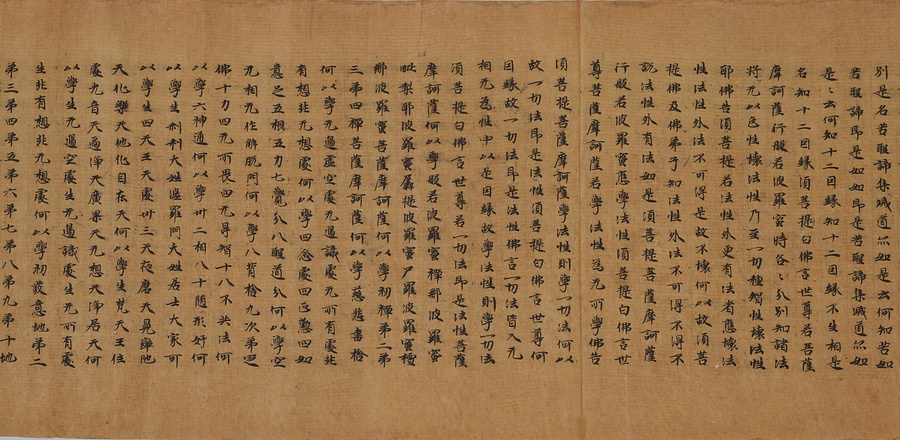 別是名苦聖諦集滅道亦如是云何知苦如
苦聖諦即是如如即是苦聖諦集滅道亦如
是云何知十二因緣知十二因緣不生相是
名知十二因緣須菩提白佛言世尊若菩薩
摩訶薩行般若波羅蜜時各〻分別知諸法
將无以色性壞法性乃至一切種智性壞法性
耶佛告須菩提若法性外更有法者應壞法
性法性外法不可得是故不壞何以故須菩
提佛及佛弟子知法性外法不可得不得不
說法性外有法如是須菩提菩薩摩訶薩
行般若波羅蜜應學法性須菩提白佛言世
尊菩薩摩訶薩若學法性為无所學佛告
須菩提菩薩摩訶薩學法性則學一切法何以
故一切法即是法性須菩提白佛言世尊何
因緣故一切法即是法性佛言一切法皆入无
相无為性中以是因緣故學法性則學一切法
須菩提白佛言世尊若一切法即是法性菩薩
摩訶薩何以學般若波羅蜜禪那波羅蜜
毗梨耶波羅蜜羼提波羅蜜尸羅波羅蜜檀
那波羅蜜菩薩摩訶薩何以學初禪第二第
三第四禪菩薩摩訶薩何以學慈悲喜捨
何以學无邊虛空處无邊識處无所有處非
有想非无想處何以學四念處四正懃四如
意足五根五力七覺分八聖道分何以學空
无相无作解脫門何以學八背捨九次第定
佛十力四无所畏四无㝵智十八不共法何
以學六神通何以學卅二相八十隨形好何
以學生剎利大姓婆羅門大姓居士大家何
以學生四天王天處卅三天夜摩天兜率陀
天化樂天他化自在天何以學生梵天王住
處光音天遍淨天廣果天无想天淨居天何
以學生无邊空處生无邊識處生无所有處
生非有想非无想處何以學初發意地第二
第三第四第五第六第七第八第九第十地